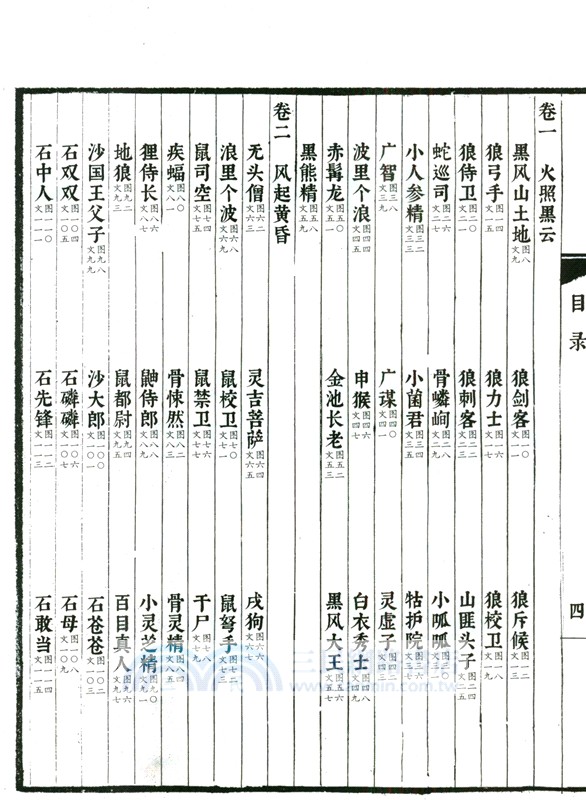 目录 四
卷一 火照黑云
黑风山土地 图八 文九 狼剑客 图一〇 文一一 狼斥候 图一二 文一三
狼弓手 图一四 文一五 狼力士 图一六 文一七 狼校卫 图一八 文一九
狼侍卫 图二〇 文二一 狼刺客 图二二 文二三 山匪头子 图二四 文二五
蛇巡司 图二六 文二七 骨嶙峋 图二八 文二九 小呱呱 图三〇 文三一
小人参精 图三二 文三三 小菌君 图三四 文三五 牯护院 图三六 文三七
广智 图三八 文三九 广谋 图四〇 文四一 灵虚子 图四二 文四三
波里个浪 图四四 文四五 申猴 图四六 文四七 白衣秀士 图四八 文四九
赤髯龙 图五〇 文五一 金池长老 图五二 文五三 黑风大王 图五六 文五七
黑熊精 图五八 文五九
卷二 风起黄昏
无头僧 图六二 文六三 灵吉菩萨 图六四 文六五 戌狗 图六六 文六七
浪里个波 图六八 文六九 鼠校卫 图七〇 文七一 鼠弩手 图七二 文七三
鼠司空 图七四 文七五 鼠禁卫 图七六 文七七 千尸 图七八 文七九
疾蝠 图八〇 文八一 骨悚然 图八二 文八三 骨灵精 图八四 文八五
狸侍长 图八六 文八七 鼬侍郎 图八八 文八九 小灵芝精 图九〇 文九一
地狼 图九二 文九三 鼠都尉 图九四 文九五 百目真人 图九六 文九七
沙国王父子 图九八 文九九 沙大郎 图一〇〇 文一〇一 石苍苍 图一〇二 文一〇三
石双双 图一〇四 文一〇五 石磷磷 图一〇六 文一〇七 石母 图一〇八 文一〇九
石中人 图一一〇 文一一一 石先锋 图一一二 文一一三 石敢当 图一一四 文一一五